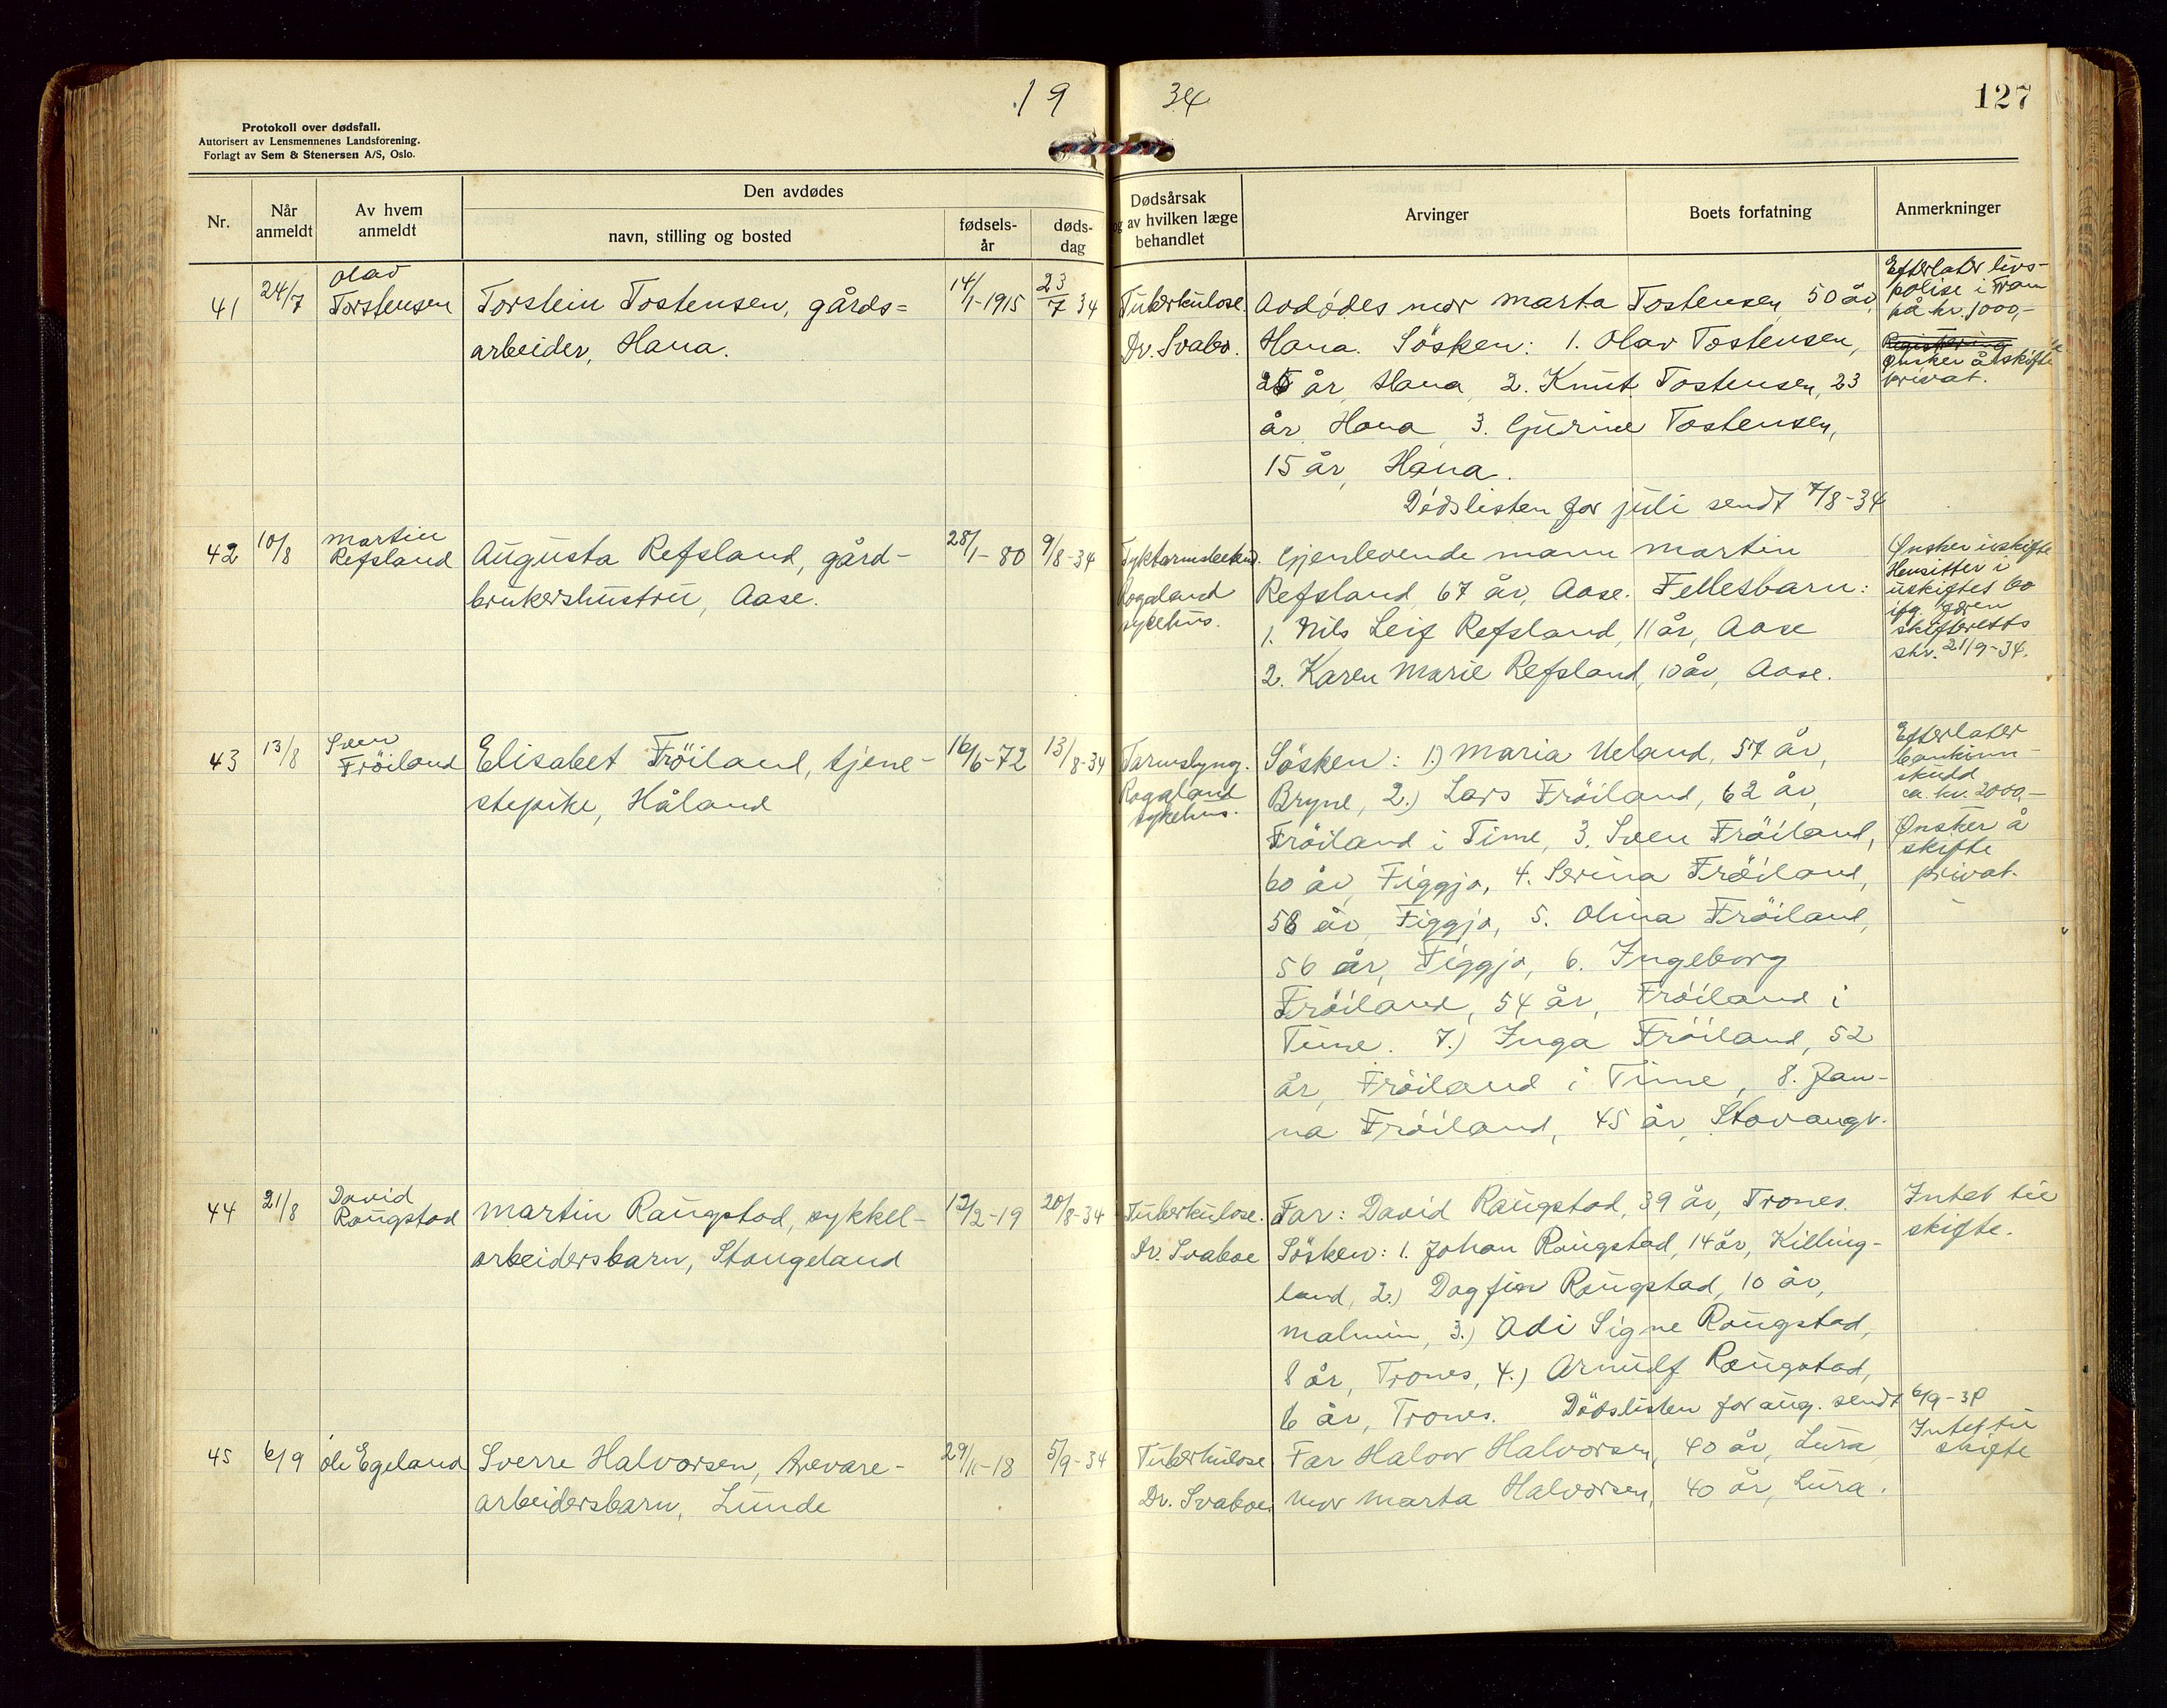 19 34
127
Protokoll over dødsfall.
Autorisert av Lensmennenes Landsforening.
Forlagt av Sem & Stenersen A/S, Oslo.
Nr.
Når anmeldt
Av hvem anmeldt
Den avdødes
navn, stilling og bosted
fødselsår
dødsdag
Dødsårsak
og av hvilken læge
behandlet
Arvinger
Boets forfatning
Anmerkninger
41 24/7 Olav Torstensen
Torstein Tostensen, gårds=
arbeider, Hana.
14/1-1915 23/7 34
Tuberkulose.
Dr. Svabo.
Avdødes mor Marta Tostensen, 50 år,
Hana. Søsken: 1. Olav Tostensen,
år, Hana, 2. Knut Tostensen, 23
år, Hana, 3. Gurine Tostensen,
15 år, Hana.
Dødslisten for juli sendt 7/8-34
Efterlater livs-
polise i Fram
på kr. 1000,-
Registrering
Ønsker å skifte
privat.
42 10/8 Martin Refsland
Augusta Refsland, gård-
brukershustru, Aase.
28/1-80 9/8-34
Rogaland
sykehus.
Gjenlevende mann Martin
Refsland, 67 år, Aase. Fellesbarn:
1. Nils Leif Refsland, 11 år, Aase
2. Karen Marie Refsland, 10 år, Aase.
Ønsker uskifte
Hensitter i
uskiftes bo
ifg. Jæren
skifteretts
skr. 21/9-34.
43 13/8 Sven Fröiland
Elisabet Fröiland, tjene-
stepike, Håland
16/6-72 13/8-34
Tarmslyng.
Rogaland
sykehus.
Søsken: 1.) Maria Ueland, 57 år,
Bryne, 2.) Lars Fröiland, 62 år,
Fröiland i Time, 3. Sven Fröiland,
60 år, Figgjo, 4. Serina Fröiland,
58 år, Figgjo, 5. Olina Fröiland,
56 år, Figgjo, 6. Ingeborg
Fröiland, 54 år, Fröiland i
Time. 7.) Inga Fröiland, 52
år, Fröiland i Time, 8. Jan-
na Fröiland, 45 år, Stavangr.
Efterlater
bankinn-
skudd
ca. kr. 2000,-
Ønsker å
skifte
privat.
44 21/8 David Raugstad
Martin Raugstad, sykkel-
arbeidersbarn, Stangeland
12/2-19 20/8-34
Tuberkulose.
Dr. Svaboe
Far: David Raugstad, 39 år, Trones.
Søsken: 1. Johan Raugstad, 14 år, Killing-
land, 2.) Dagfinn Raugstad, 10 år,
Malmin, 3.) Adi Signe Raugstad,
8 år, Trones, 4.) Arnulf Raugstad,
6 år, Trones. Dødslisten for aug. sendt 6/9-34
Intet til
skifte.
45 6/9 Ole Egeland
Sverre Halvorsen, trevare-
arbeidersbarn, Lunde
29/11-18 5/9-34
Tuberkulose
Dr. Svaboe.
Far Halvor Halvorsen, 40 år, Lura,
mor Marta Halvorsen, 40 år, Lura.
Intet til
skifte